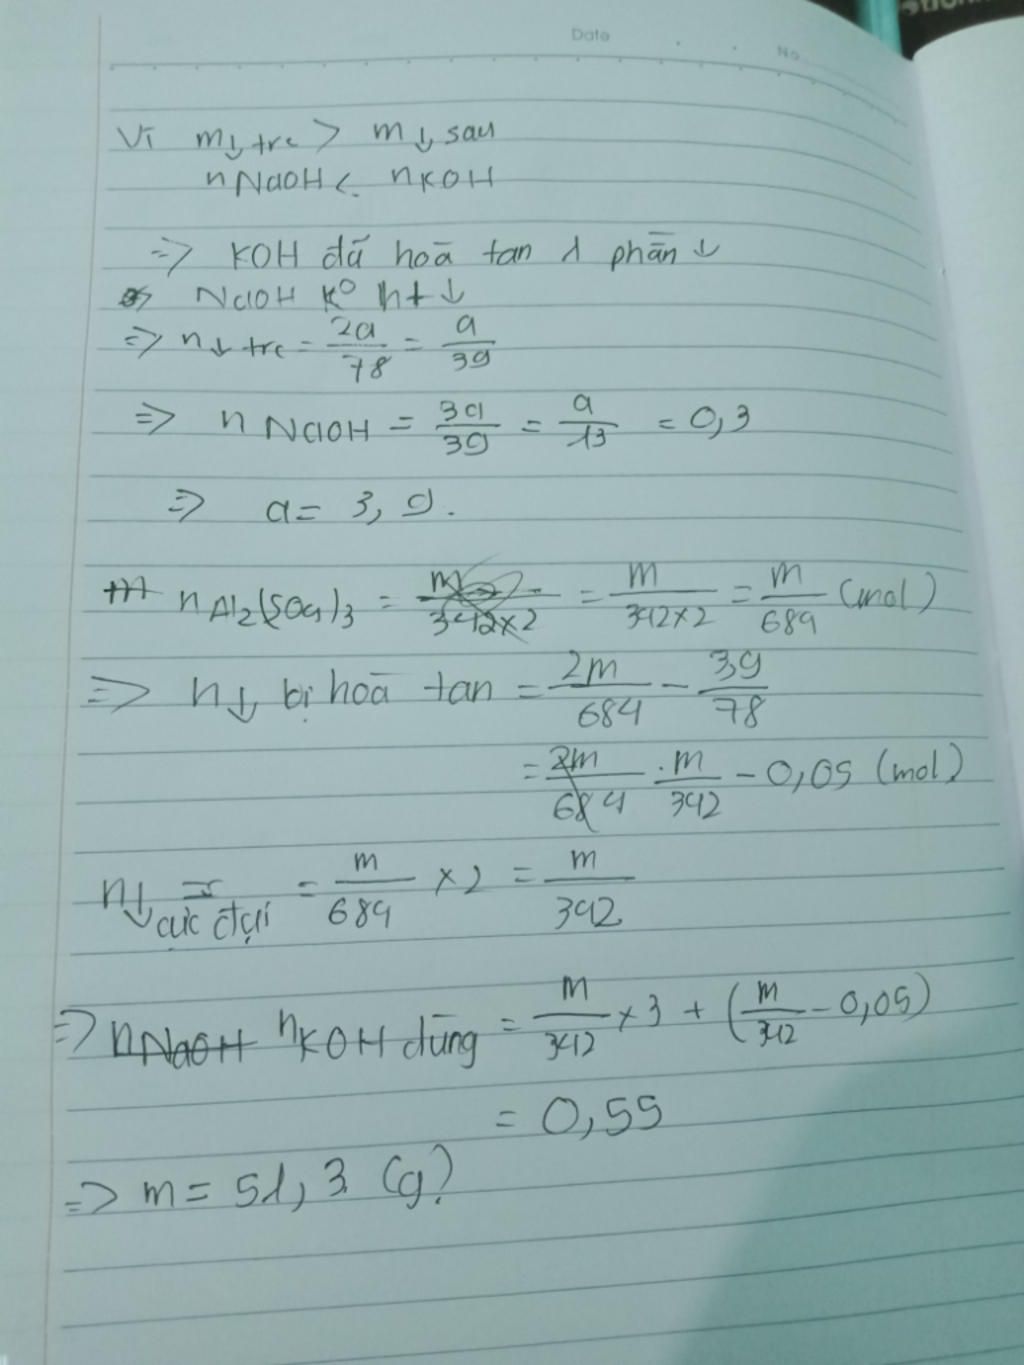 Date
No
Vì m↓ trc > m↓ sau
nNaOH < nKOH
=> KOH đã hoà tan 1 phần ↓
=> NaOH ko ht ↓
=> n↓ trc = 2a/78 = a/39
=> n NaOH = 3a/39 = a/13 = 0,3
=> a = 3,9.
n Al2(SO4)3 = m/342×2 = m/684 (mol)
=> n↓ bị hoà tan = 2m/684 - 3,9/78
= m/342 - 0,05 (mol)
n↓ cực đại = m/684 × 2 = m/342
=> nKOH dùng = m/342 × 3 + (m/342 - 0,05)
= 0,55
=> m = 51,3 (g)